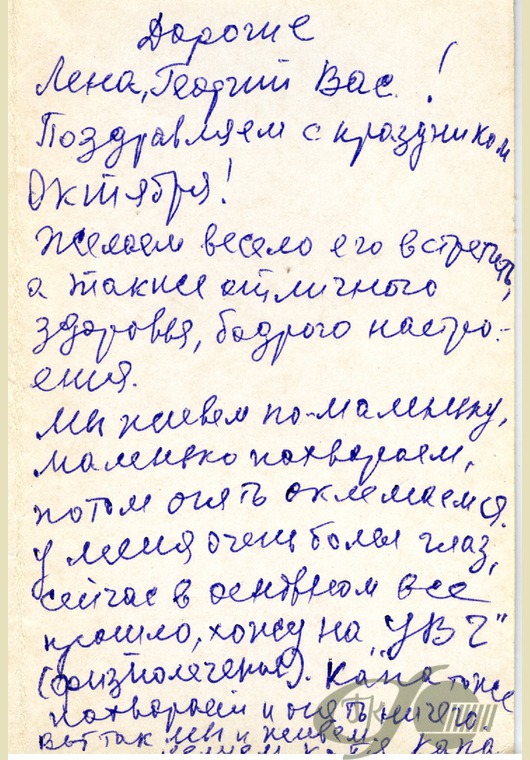 Дорогие
Лена, Георгий Вас!
Поздравляем с праздником
Октября!
Желаем весело его встретить,
а также отличного
здоровья, бодрого настро-
ения.
Мы живем по-маленьку,
маленько похвораем,
потом опять оклемаемся.
У меня очень болел глаз,
сейчас в основном все
прошло, хожу на „УВЧ"
(физполеченье). Капа тоже
похвораем и опять ничего.
Вот так мы и живем.
Капа